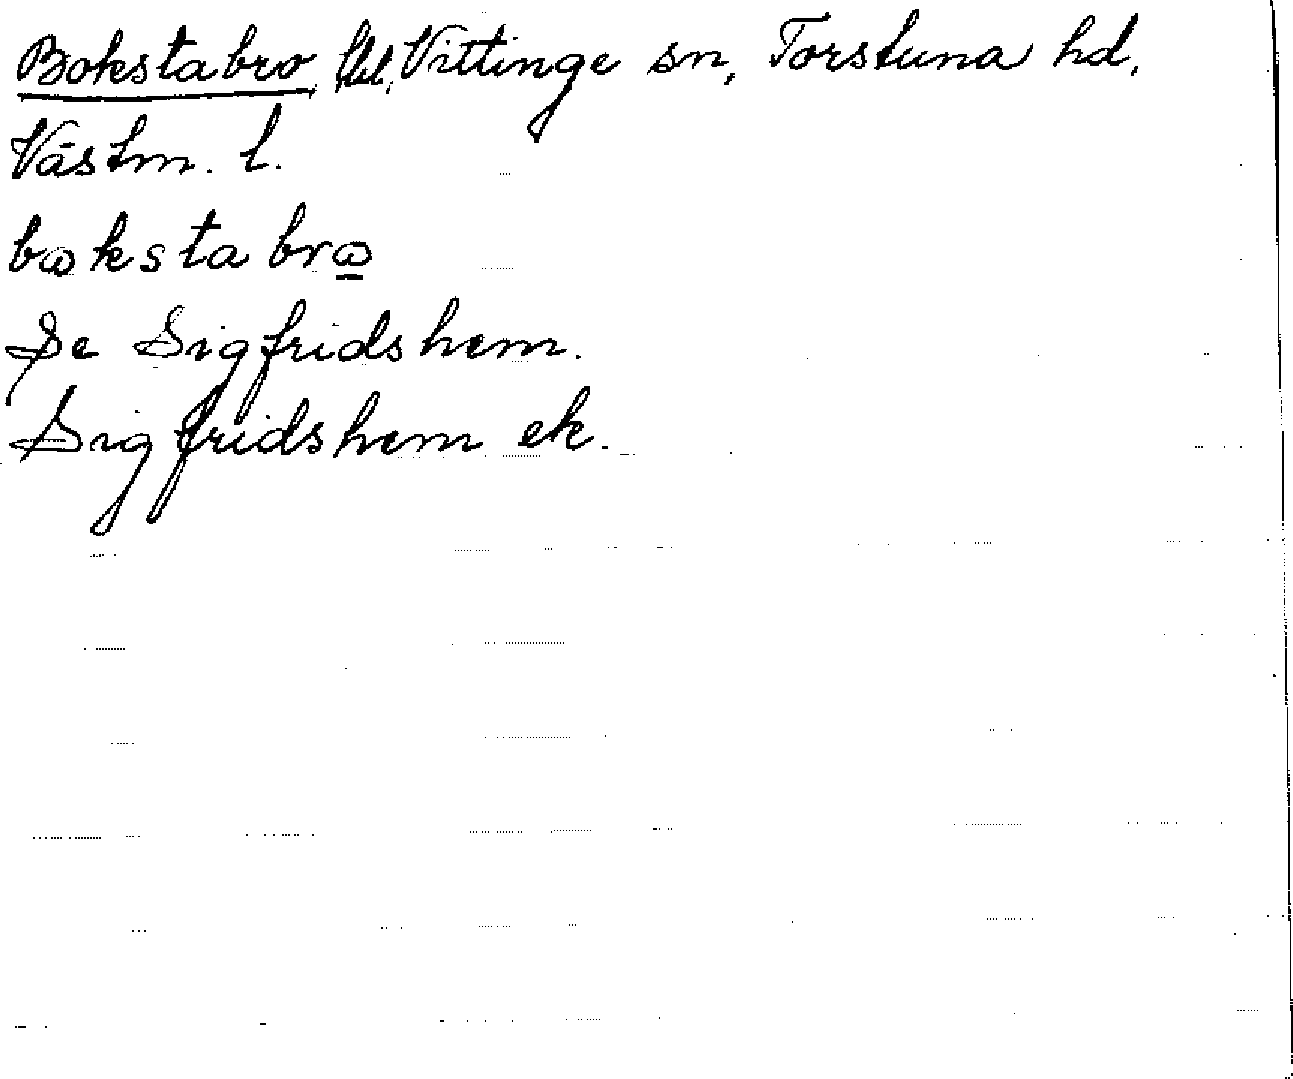 Bokstabro, Vittinge sn, Torstuna hd,
Västm. l.
bokstabro
Se Sigfridshem.
Sigfridshem ek.